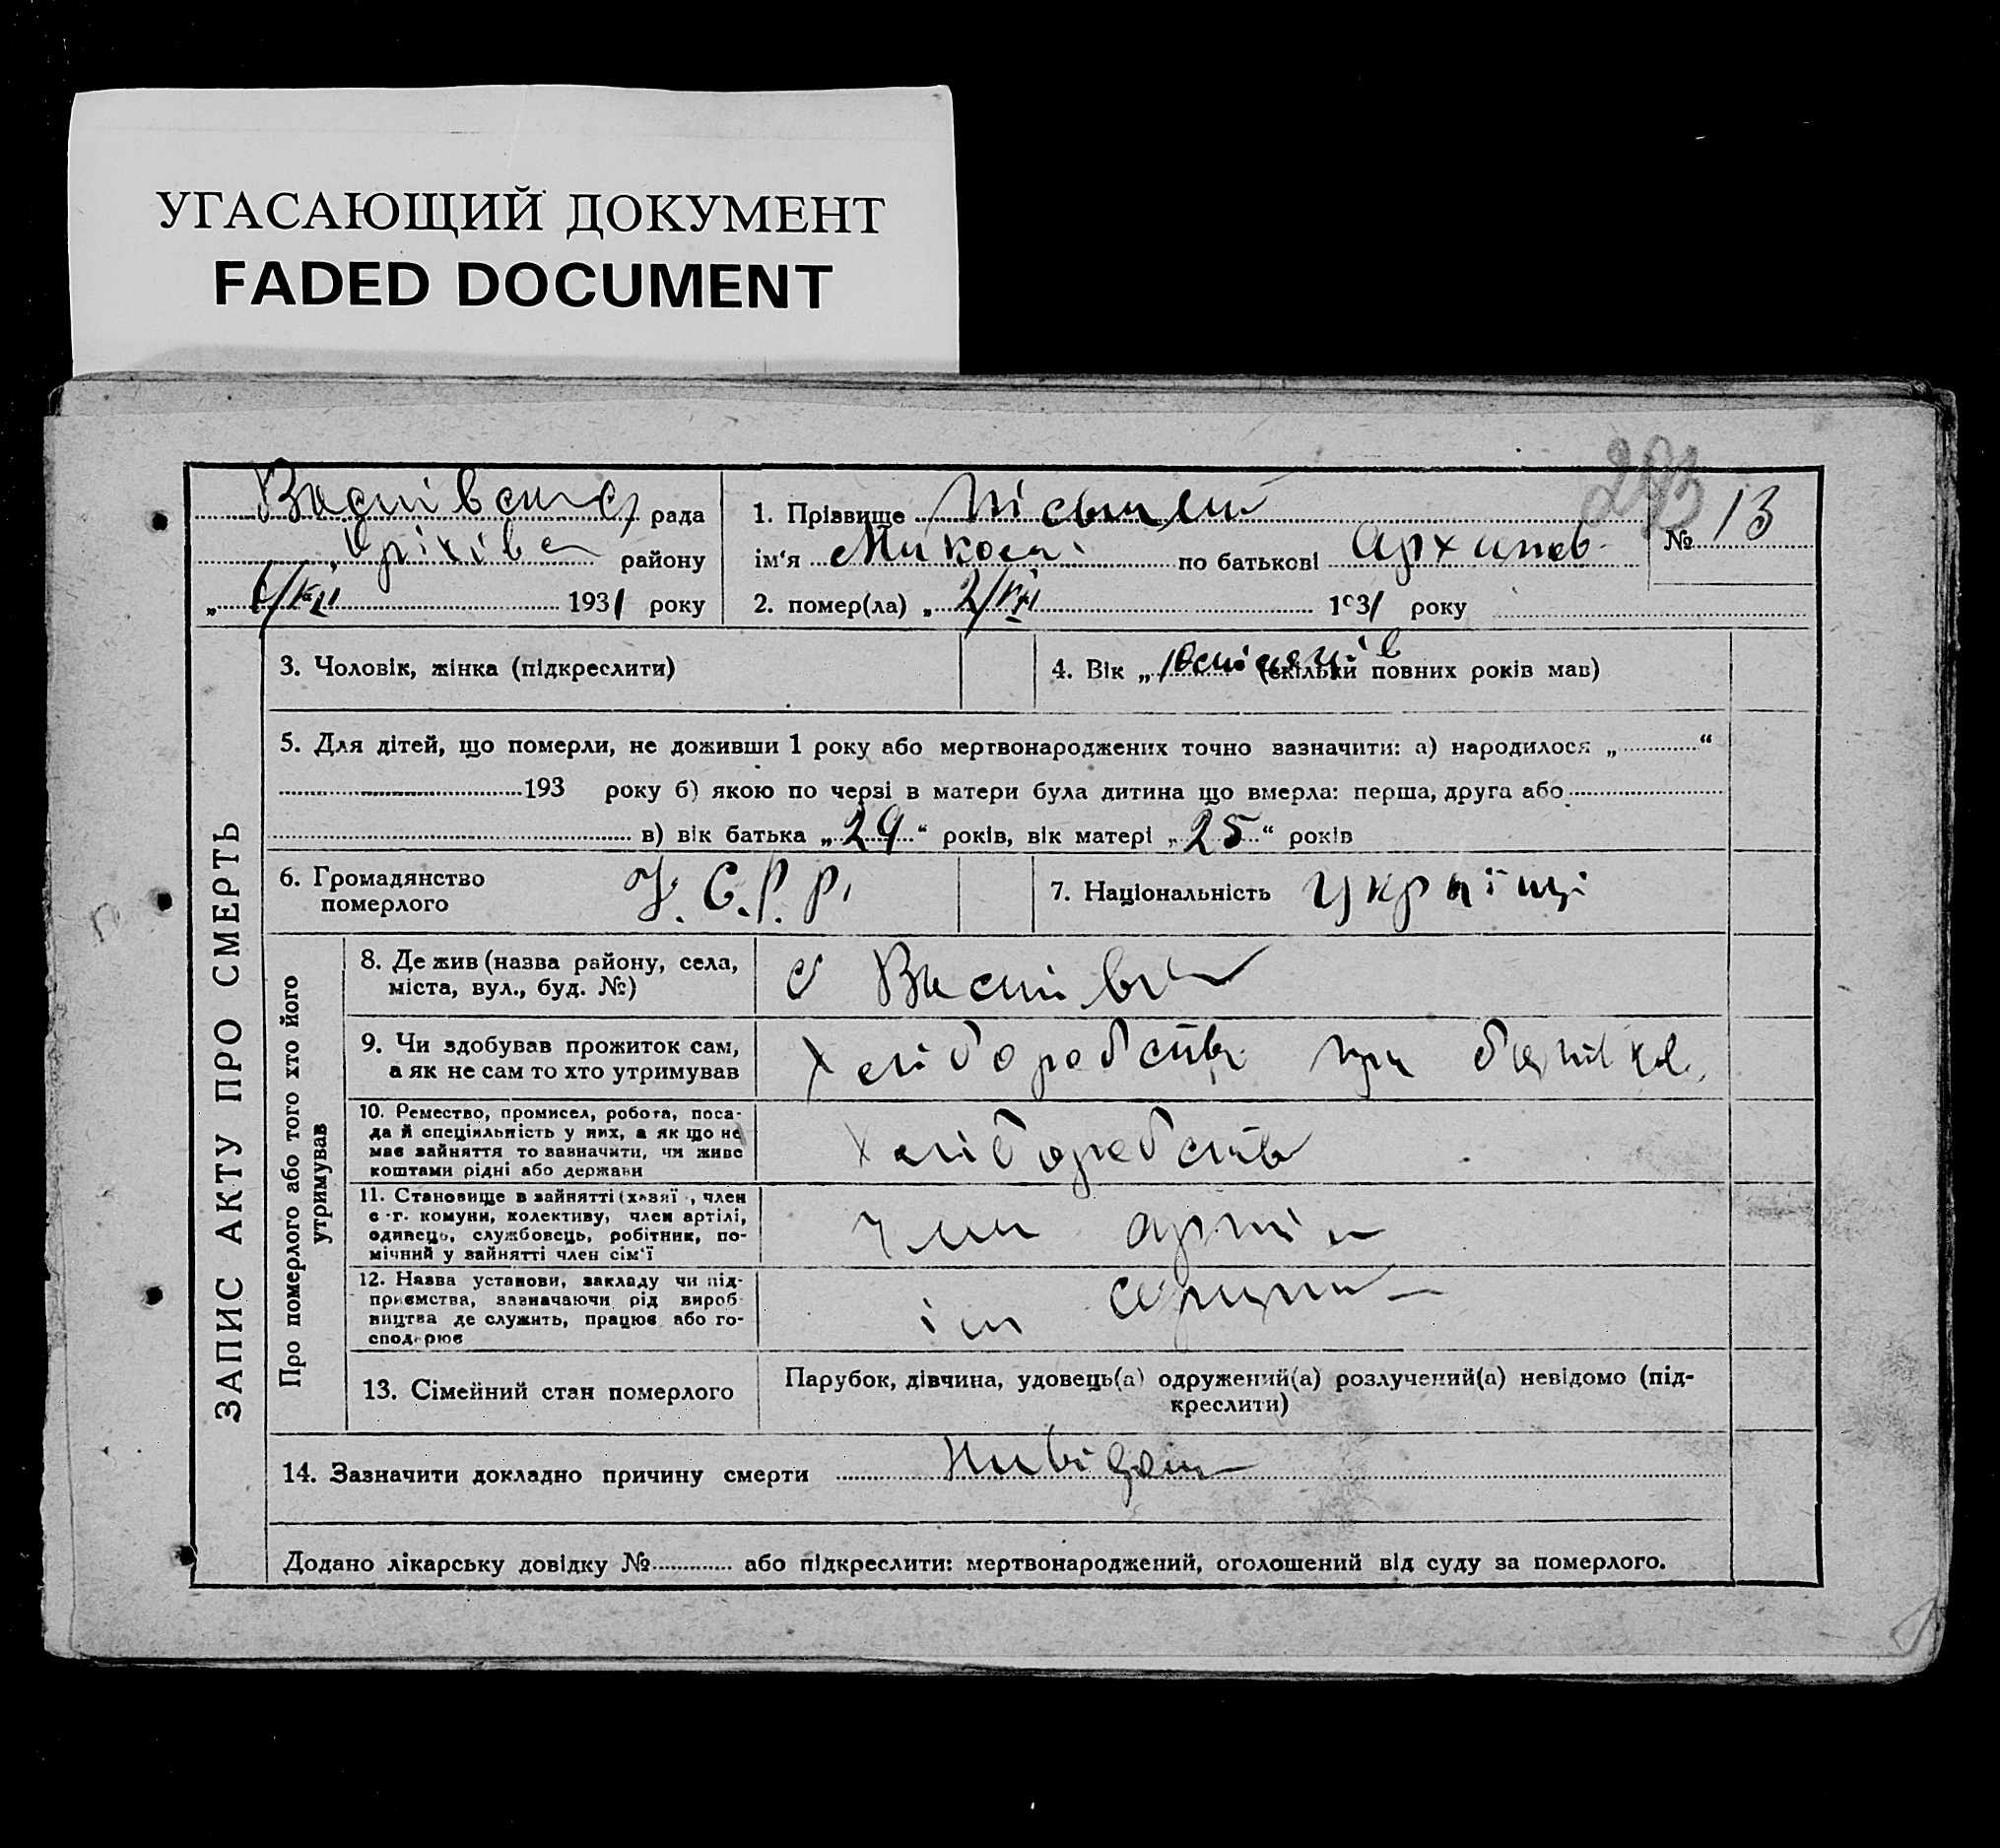 УГАСАЮЩИЙ ДОКУМЕНТ
FADED DOCUMENT
293
рада
району
6/VII 1931 року
1. Прізвище
ім'я Миколай по батькові Архипов.
2. помер(ла) „ 2/VII 1931 року
№ 13
ЗАПИС АКТУ ПРО СМЕРТЬ
3. Чоловік, жінка (підкреслити)
4. Вік „ 10 місяців (скільки повних років мав)
5. Для дітей, що померли, не доживши 1 року або мертвонароджених точно вазначити: а) народилося „ “
193 року б) якою по черзі в матери була дитина що вмерла: перша, друга або
в) вік батька „ 29 “ років, вік матері „ 25 “ років
6. Громадянство
померлого
У. С. Р. Р.
7. Національність Україці
Про померлого або того хто його
утримував
8. Де жив (назва району, села,
міста, вул., буд. №)
с
9. Чи здобував прожиток сам,
а як не сам то хто утримував
Хліборобств при батьков.
10. Ремество, промисел, робота, поса-
да й спеціяльність у них, а як що не
має зайняття то вазначити, чи живе
коштами рідні або держави
Хліборобств
11. Становище в зайнятті (хазяї , член
с.-г. комуни, колективу, член артілі,
одинець, службовець, робітник, по-
мічний у зайнятті член сім'ї
член артіли
12. Назва установи, закладу чи під-
приємства, зазначаючи рід вироб-
ництва де служить, працює або го-
сподарює
ім
13. Сімейний стан померлого
Парубок, дівчина, удовець(а) одружений(а) розлучений(а) невідомо (під-
креслити)
14. Зазначити докладно причину смерти Нивідома
Додано лікарську довідку № або підкреслити: мертвонароджений, оголошений від суду за померлого.